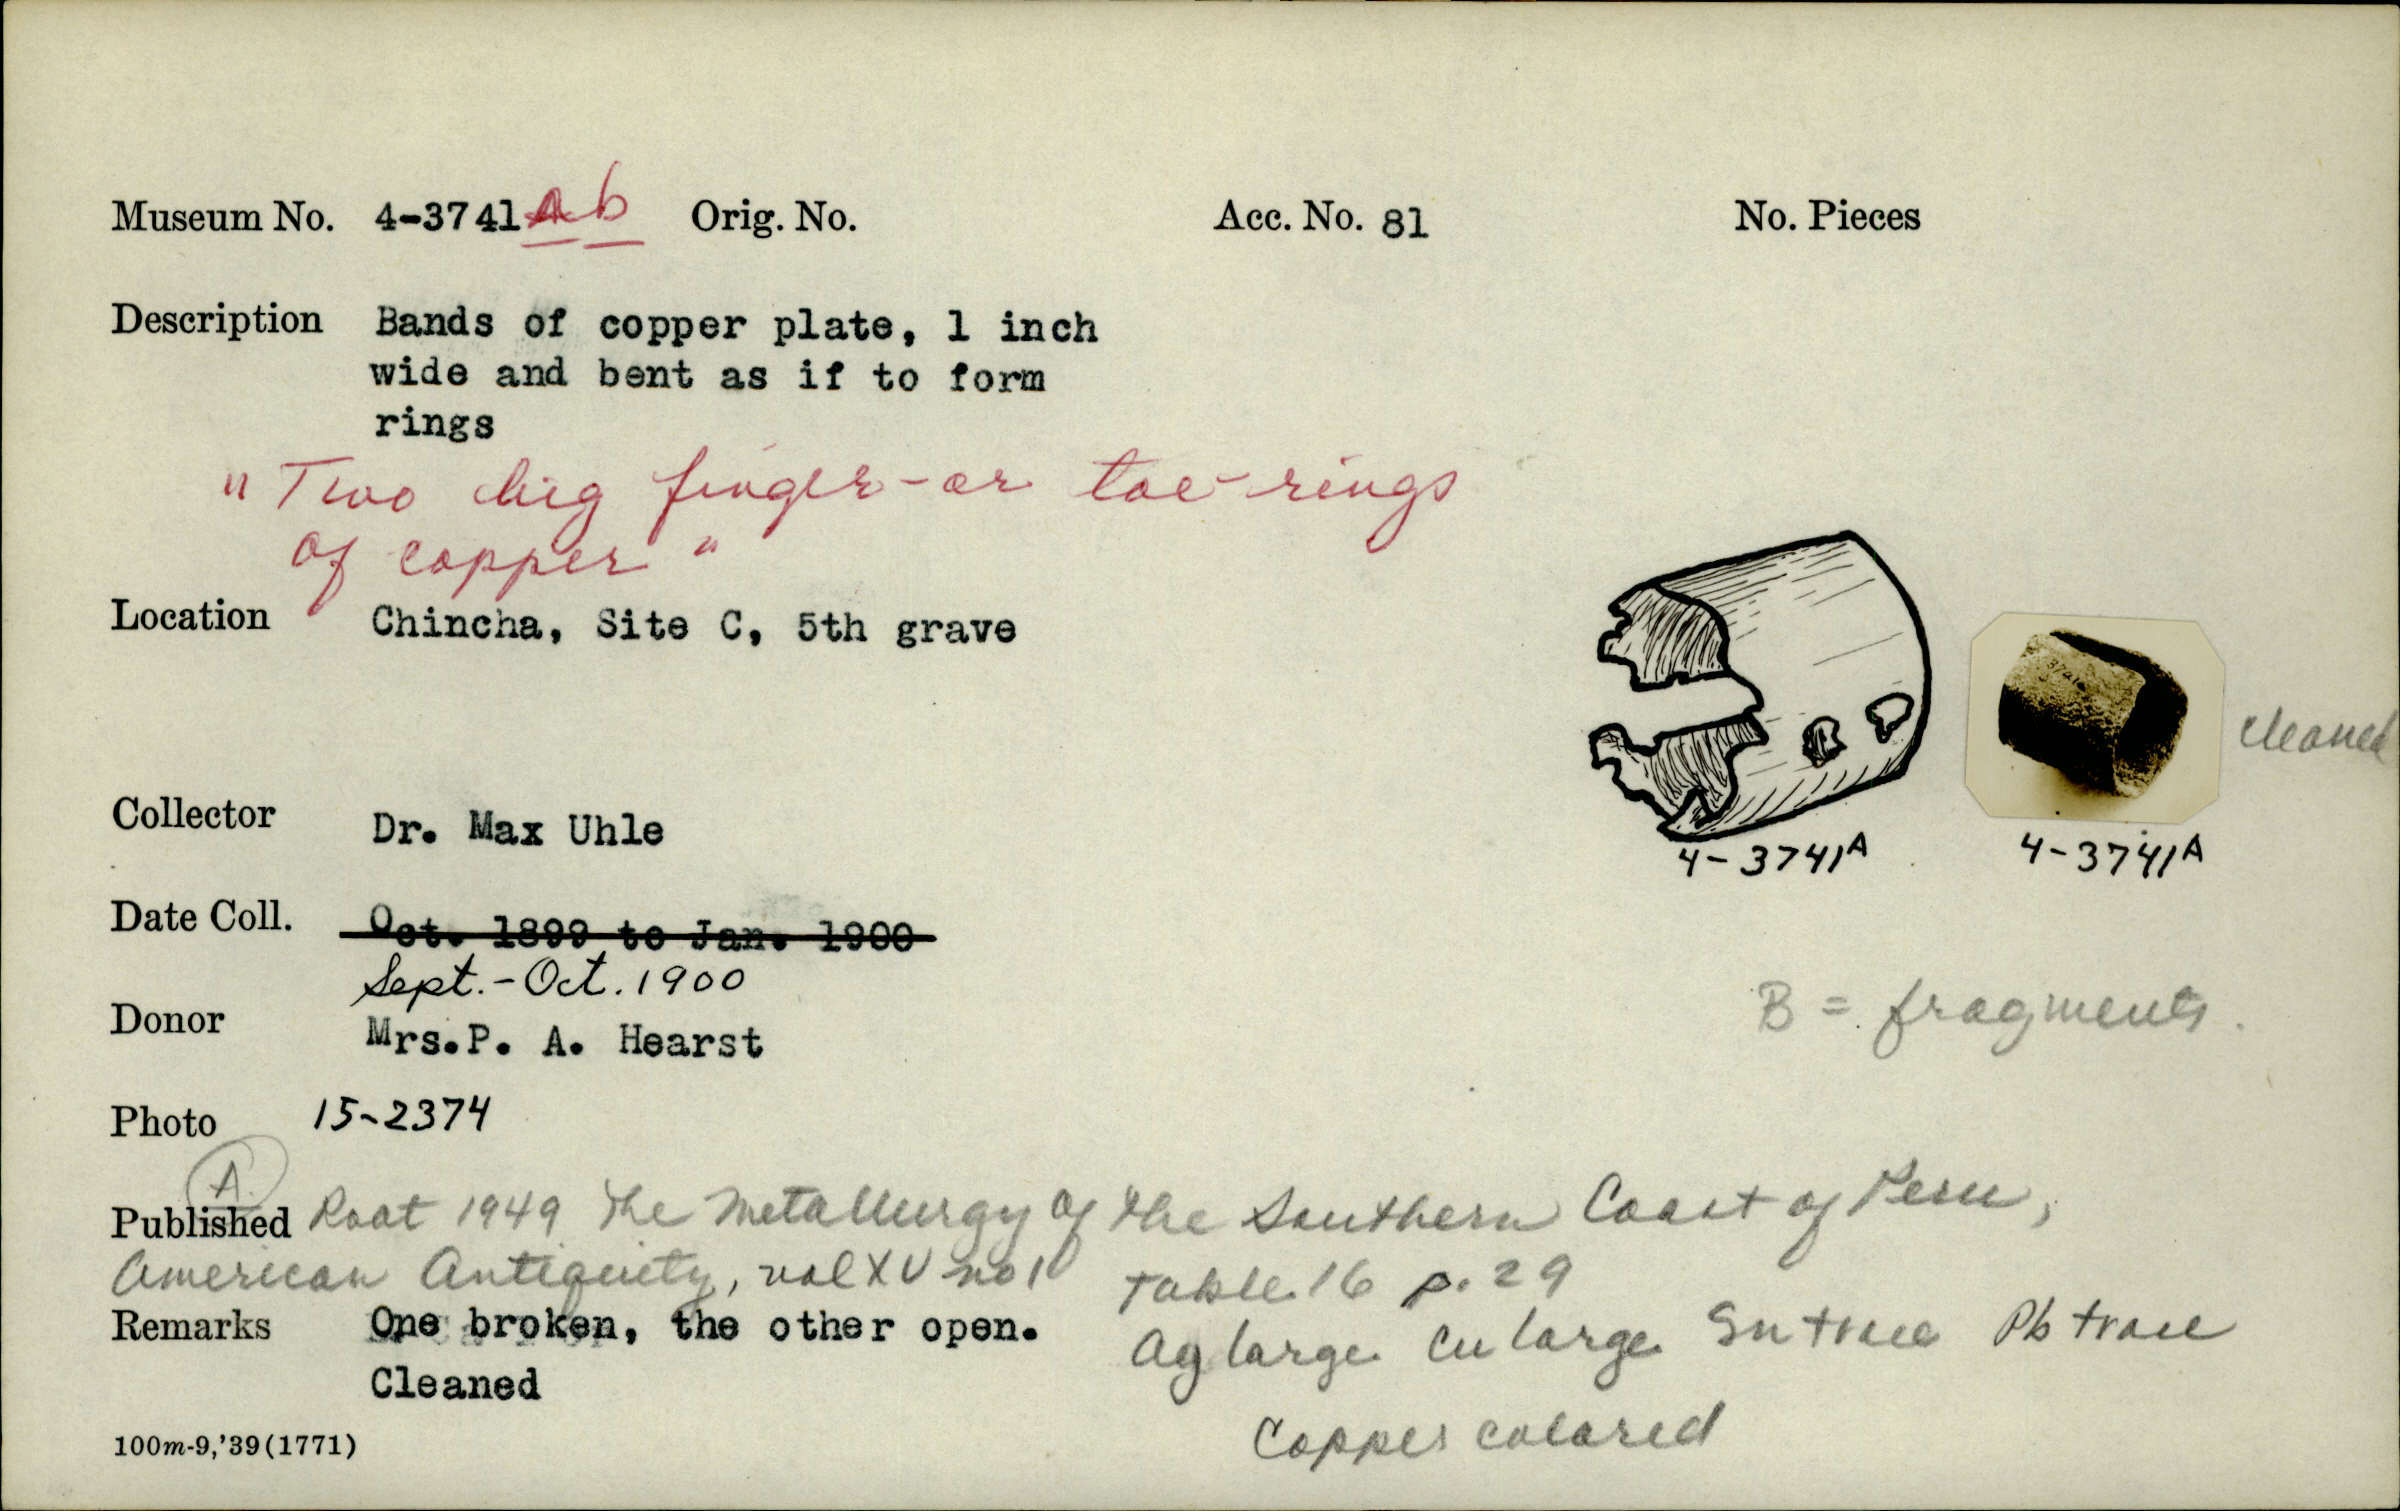 Museum No. 4-3741 a b Orig. No. Acc. No. 81 No. Pieces
Description Bands of copper plate, 1 inch
wide and bent as if to form
rings
"Two big finger-or toe-rings
of copper"
Location Chincha, Site C, 5th grave
3741
cleaned
Collector Dr. Max Uhle
4-3741A 4-3741A
Date Coll. Oct. 1899 to Jan. 1900
Sept.-Oct. 1900
B = fragments.
Donor Mrs.P. A. Hearst
Photo 15-2374
A
Published Root 1949 The Metallurgy of the Southern Coast of Peru,
American Antiquity, vol XV no 1 Table 16 p. 29
Remarks One broken, the other open.
Ag large Cu large Sn trace Pb trace
Cleaned
Copper colored
100m-9,'39(1771)